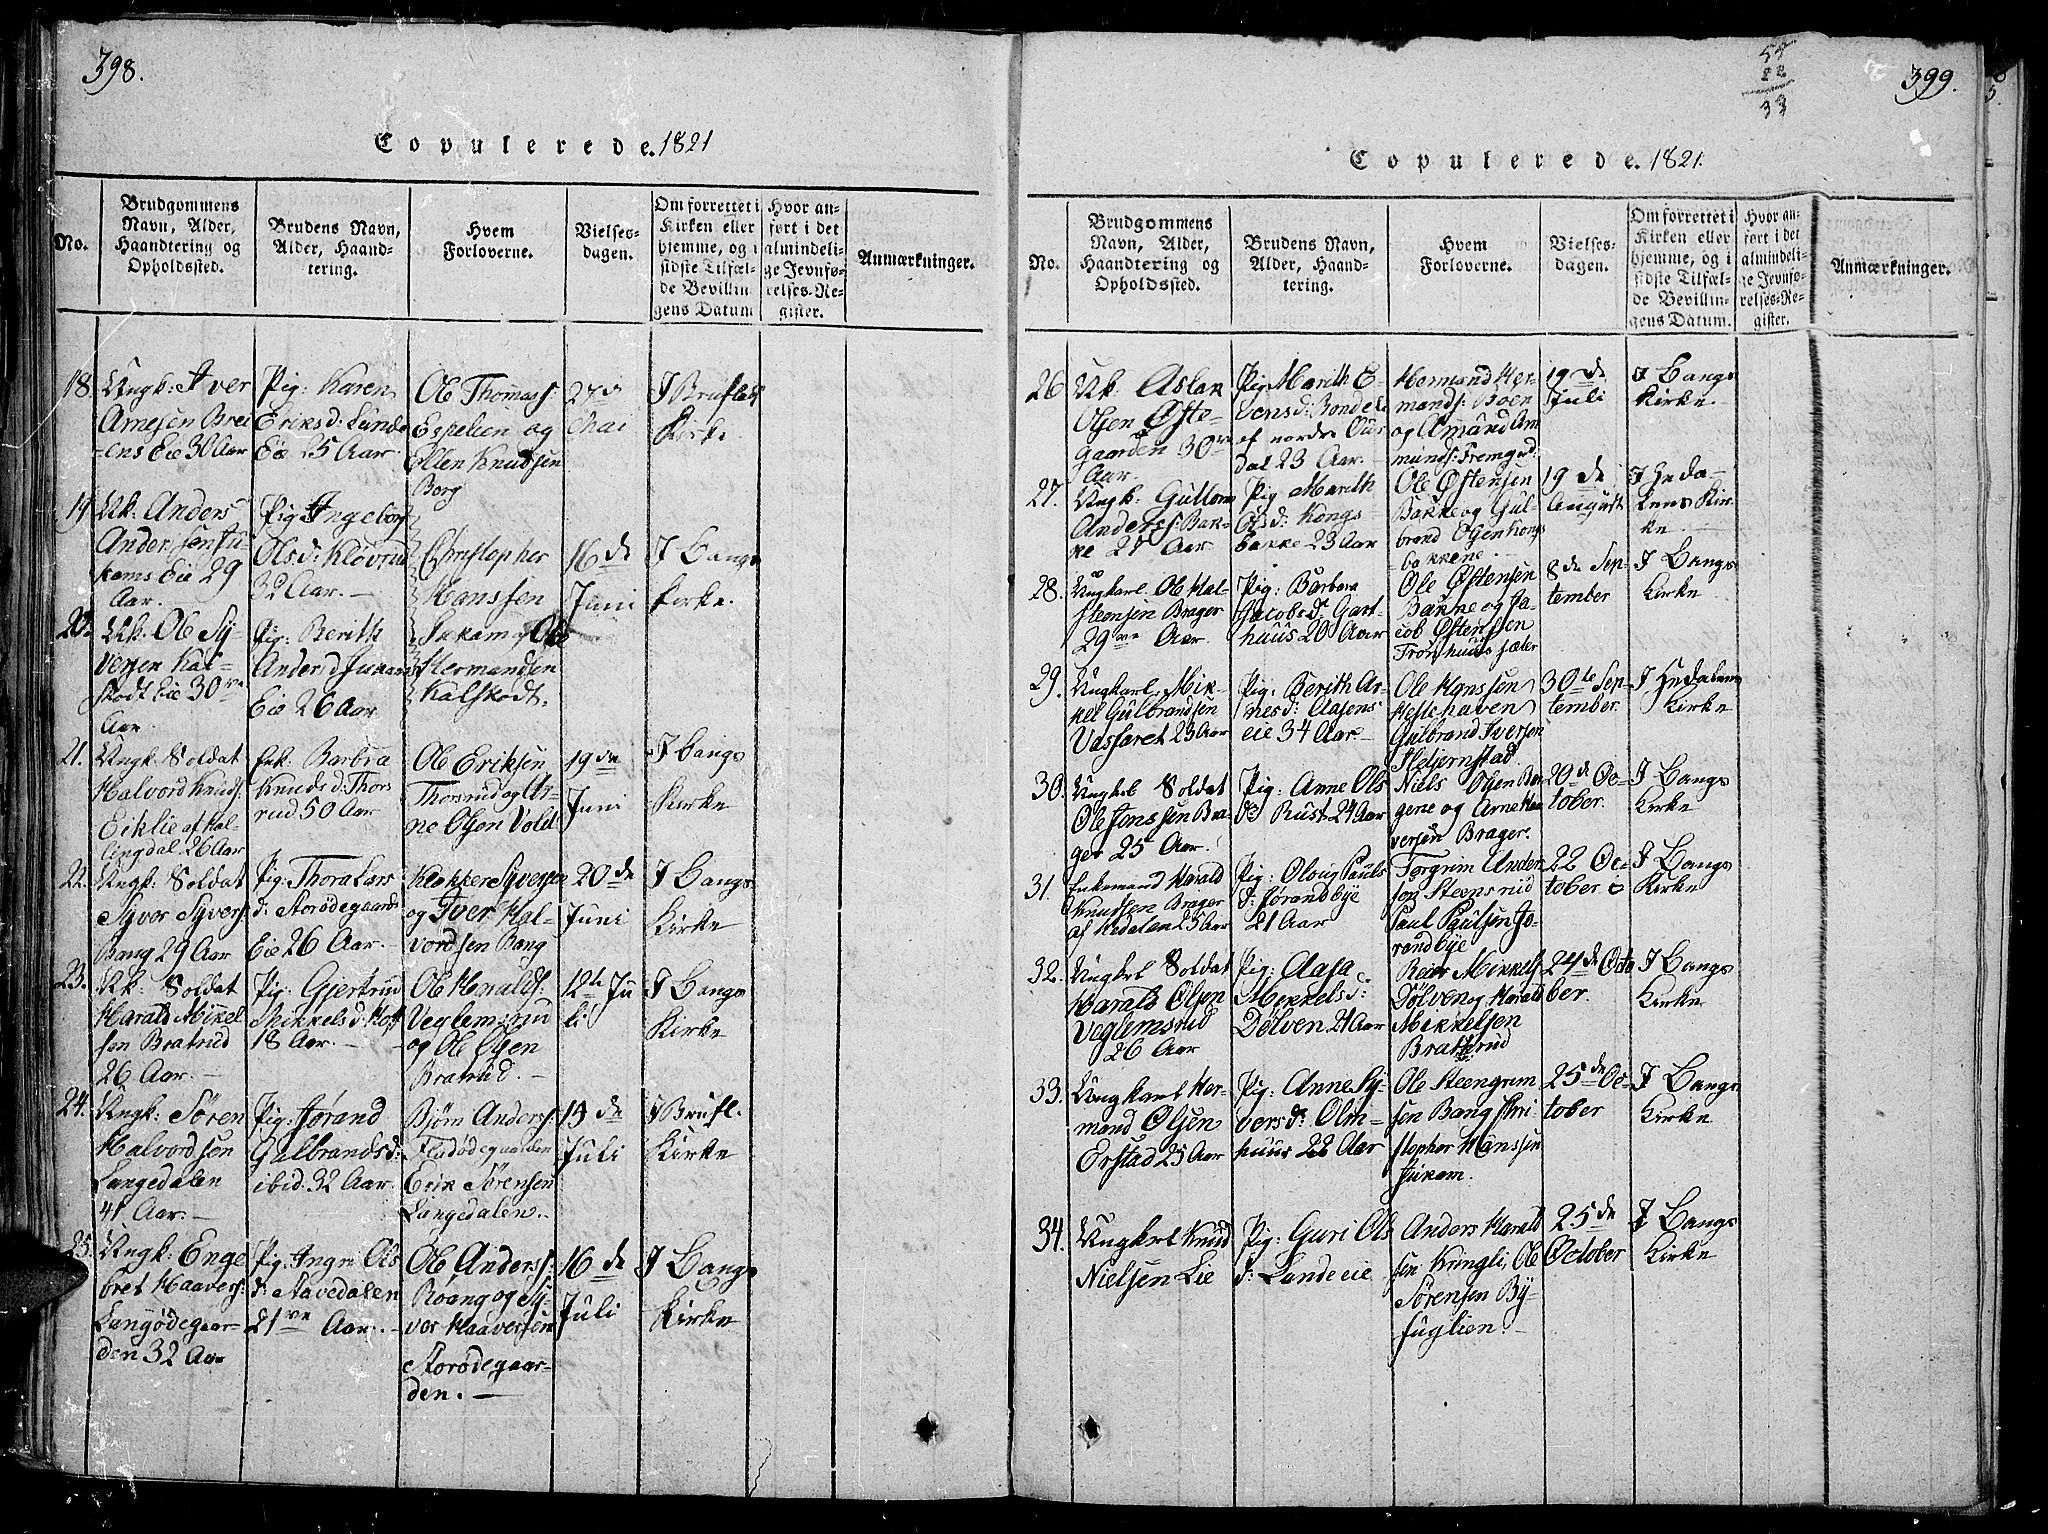 398.
Copulerede. 1821
No.
Brudgommens
Navn, Alder,
Haandtering og
Opholdssted.
Brudens Navn,
Alder, Haand-
tering.
Hvem
Forloverne.
Vielses-
dagen.
Om forrettet i
Kirken eller
hjemme, og i
sidste Tilfæl-
de Bevillin-
gens Datum.
Hvor an-
ført i det
almindeli-
ge Jevnfø-
relses-Re-
gister.
Anmærkninger.
18. Ungk: Iver
Arnesen Brei
-ens Eie 30 Aar
Pig: Karen
Eriksd: Lunde
Eie 25 Aar.
Ole Thomass:
Espelien og
Ellen Knudsen
Borg
27de
Mai
I Bruflat
Kirke
19 Uk: Anders
Andersen Ju-
kams Eie 29
Aar.
Pig: Ingeborg
Olsd: Kløvrud
32 Aar. -
Christopher
Hanssen
16 de
Juni
I Bangs
Kirke.
20. Uk: Ole Sy-
versen Kal-
skodt Eie 30ve
Aar.
Pig: Berith
Andersd Jukams
Eie 26 Aar
Jukam og Ole
Hermandsen
Kalskodt.
21. Ungk. Soldat
Halvord Knuds:
Eiklie af Hal-
lingdal. 26 Aar
Enk. Barbra
Knudsd: Thors
rud 50 Aar
Ole Eriksen
Thorsrud og Ar-
ne Olsen Vold
19de
Juni
I Bangs
Kirke
22. Ungk: Soldat
Syver Syvers:
Bang 29 Aar
Pig: Thora Lars
d: Storødegaards
Eie 26 Aar.
Klokker Syversen
og Iver Hal-
vordsen Bang
20 de
Juni
I Bangs
Kirke
23. Uk: Soldat
Harald Mikel
sen Bratrud
26 Aar. -
Pig: Gjertrud
Mikkelsd: Hoff
18 Aar. -
Ole Haralds:
Veglemsrud
og Ole Olsen
Bratrud. -
12te Ju
li
I Bangs
Kirke
24. Ungk: Sören
Halvordsen
Langedalen
41 Aar. -
Pig: Jørand
Gulbrandsd:
ibid. 32 Aar.
Bjørn Anders:
Fladødegaarden
Erik Sørensen
Langedalen.
15 de
Juli
I Brufl.
Kirke
25. Ungk: Enge
bret Haavers:
Langødegaar-
den 32 Aar
Pig: Ingri Ols
d: Stavedalen
21ve Aar. -
Ole Anders:
Roang og Sy-
ver Haaversen
Storødegaar-
den. -
16 de
Juli
I Bangs
Kirke
399.
55
22
33
Copulerede. 1821.
No.
Brudgommens
Navn, Alder,
Haandtering og
Opholdssted.
Brudens Navn,
Alder, Haand-
tering.
Hvem
Forloverne.
Vielses-
dagen.
Om forrettet i
Kirken eller
hjemme, og i
sidste Tilfæl-
de Bevillin-
gens Datum.
Hvor an-
ført i det
almindeli-
ge Jevnfø-
relses-Re-
gister.
Anmærkninger.
26 Uk: Aslak
Olsen Øfte-
gaarden 30ve
Aar
Pig Marith E-
vensd: Bondeli
af nordre Our
dal 23 Aar. -
Hermand Her-
mands: Boen
og Amund Am
munds: Fremgrd:
19 de
Juli
I Bangs
Kirke.
27. Ungk: Gulbrand
Anders: Bak-
ke 21 Aar
Pig Marith
Olsd: Kongs-
bakke 23 Aar
Ole Østensen
Bakke og Gul-
brand Olsen Kongs
bakkene -
19 de
August
I Heda-
lens Kir-
ke.
28. Ungkarl Ole Hal-
steensen Brager
29ve Aar
Pig: Barbara
Jacobsd: Gart
huus 20 Aar
Ole Østensen
Bakke og Ja-
cob Østensen
Tronhuus sæter
8 de Sep-
tember
I Bangs
Kirke
29. Ungkarl, Mik-
kel Gulbrandsen
Vasfaret 23 Aar
Pig: Berith Ar-
nesd: Aasens
eie 34 Aar -
Ole Hanssen
Hestehaven
Gulbrand Iversen
Steljernstad
30te Sep-
tember.
I Hedalens
Kirke
30. Ungkrl Soldat
Ole Jonssen Bra-
ger 25 Aar.
Pig: Anne Ols
d: Rust 24 Aar
Niels Olsen Ber-
gene og Arne Haa
versen Brager.
20de Oc-
tober.
I Bangs
Kirke
31. Enkemand Harald
Knudsen Brager
af Hedalen 25 Aar
Pig: Oloug Pauls
d: Jørandbye
21 Aar
Torgrim Ander
sen Steensrud
Paul Paulsen Jø-
randbye
22 Oc-
tober
I Bangs
Kirke
32. Ungkrl Soldat
Harald Olsen
Veglemsrud
26 Aar
Pig: Aasa
Mikkelsd:
Dølven 21 Aar
Reier Mikkels
Dølven og Harald
Mikkelsen
Bratterud
24 de Octo
ber.
I Bangs
Kirke
33. Ungkarl Her-
mand Olsen
Erstad 25 Aar
Pig: Anne Sy-
versd: Olm-
huus 22 Aar
Ole Steengrim
sen Bang Chri
stopher Hanssen
Jukam.
25 de Oc-
tober
I Bangs
Kirke
34. Ungkrl Knud
Nielsen Lie
Pig: Guri Ols
d: Lande eie
Anders Harald
sen Kringli, Ole
Sørensen By-
fuglien. -
25 de
October
I Bangs
Kirke